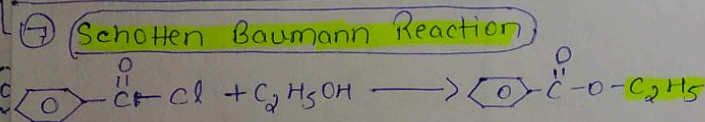 7 Schotten Baumann Reaction
O O
C - Cl + C2H5OH → C - O - C2H5